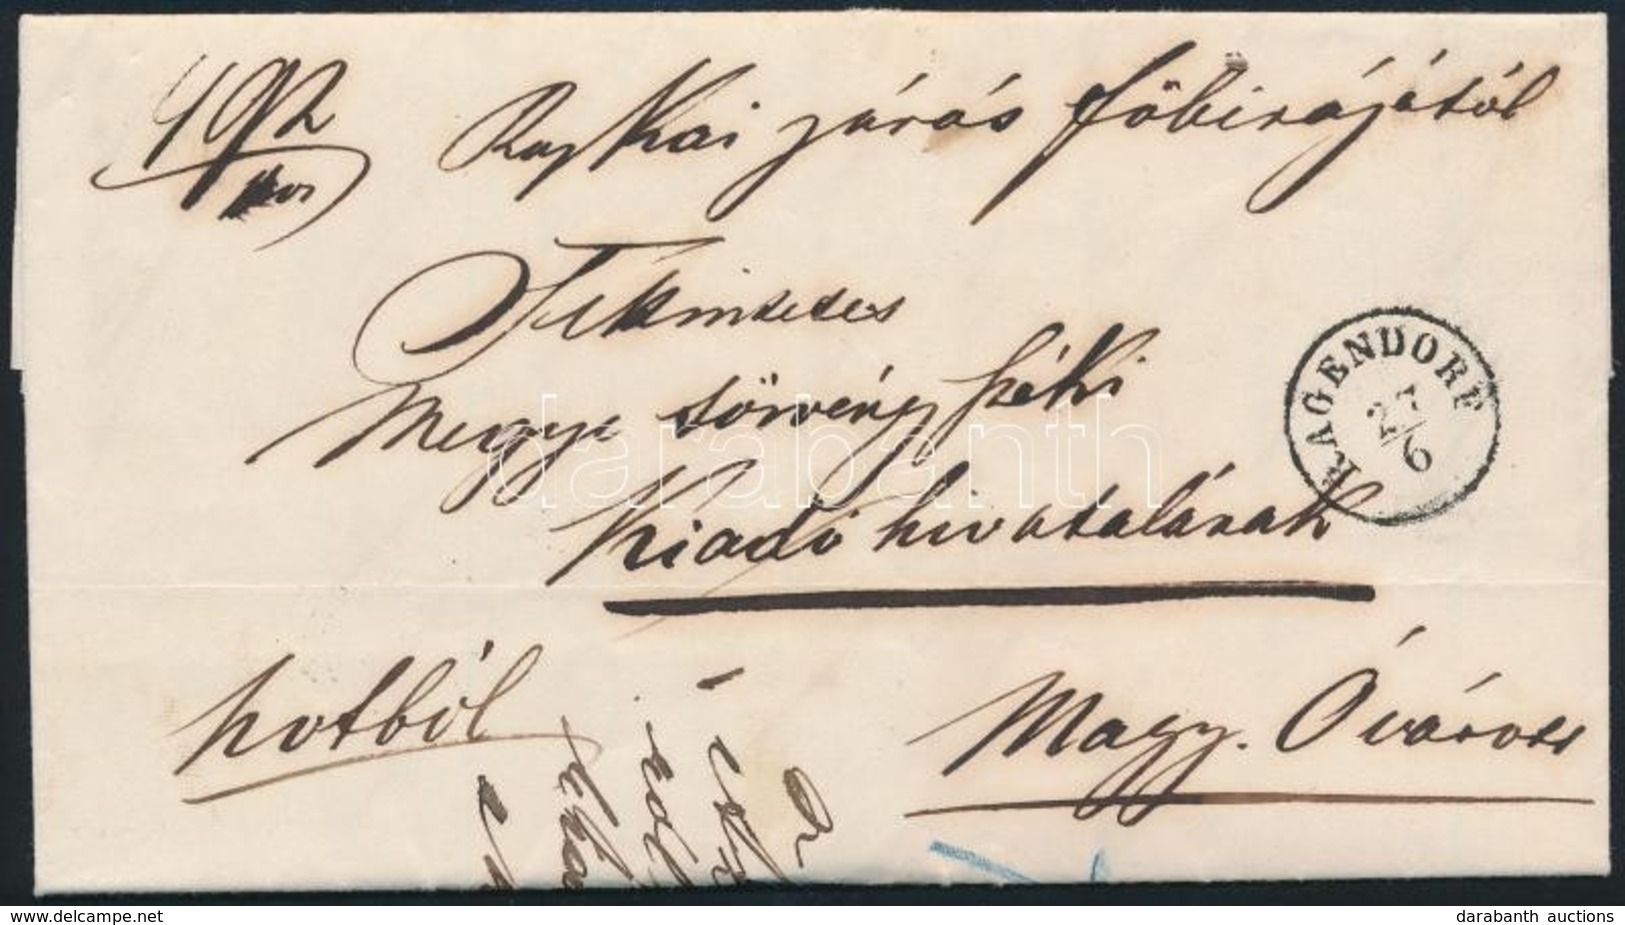 492
Rajkai járás főbirájától
Tekintetes
Megye törvényszéki
Kiadó hivatalának
RAGENDORF
27/6
hvtból
Magy. Óvárott
darabanth
www.delcampe.net
darabanth auctions